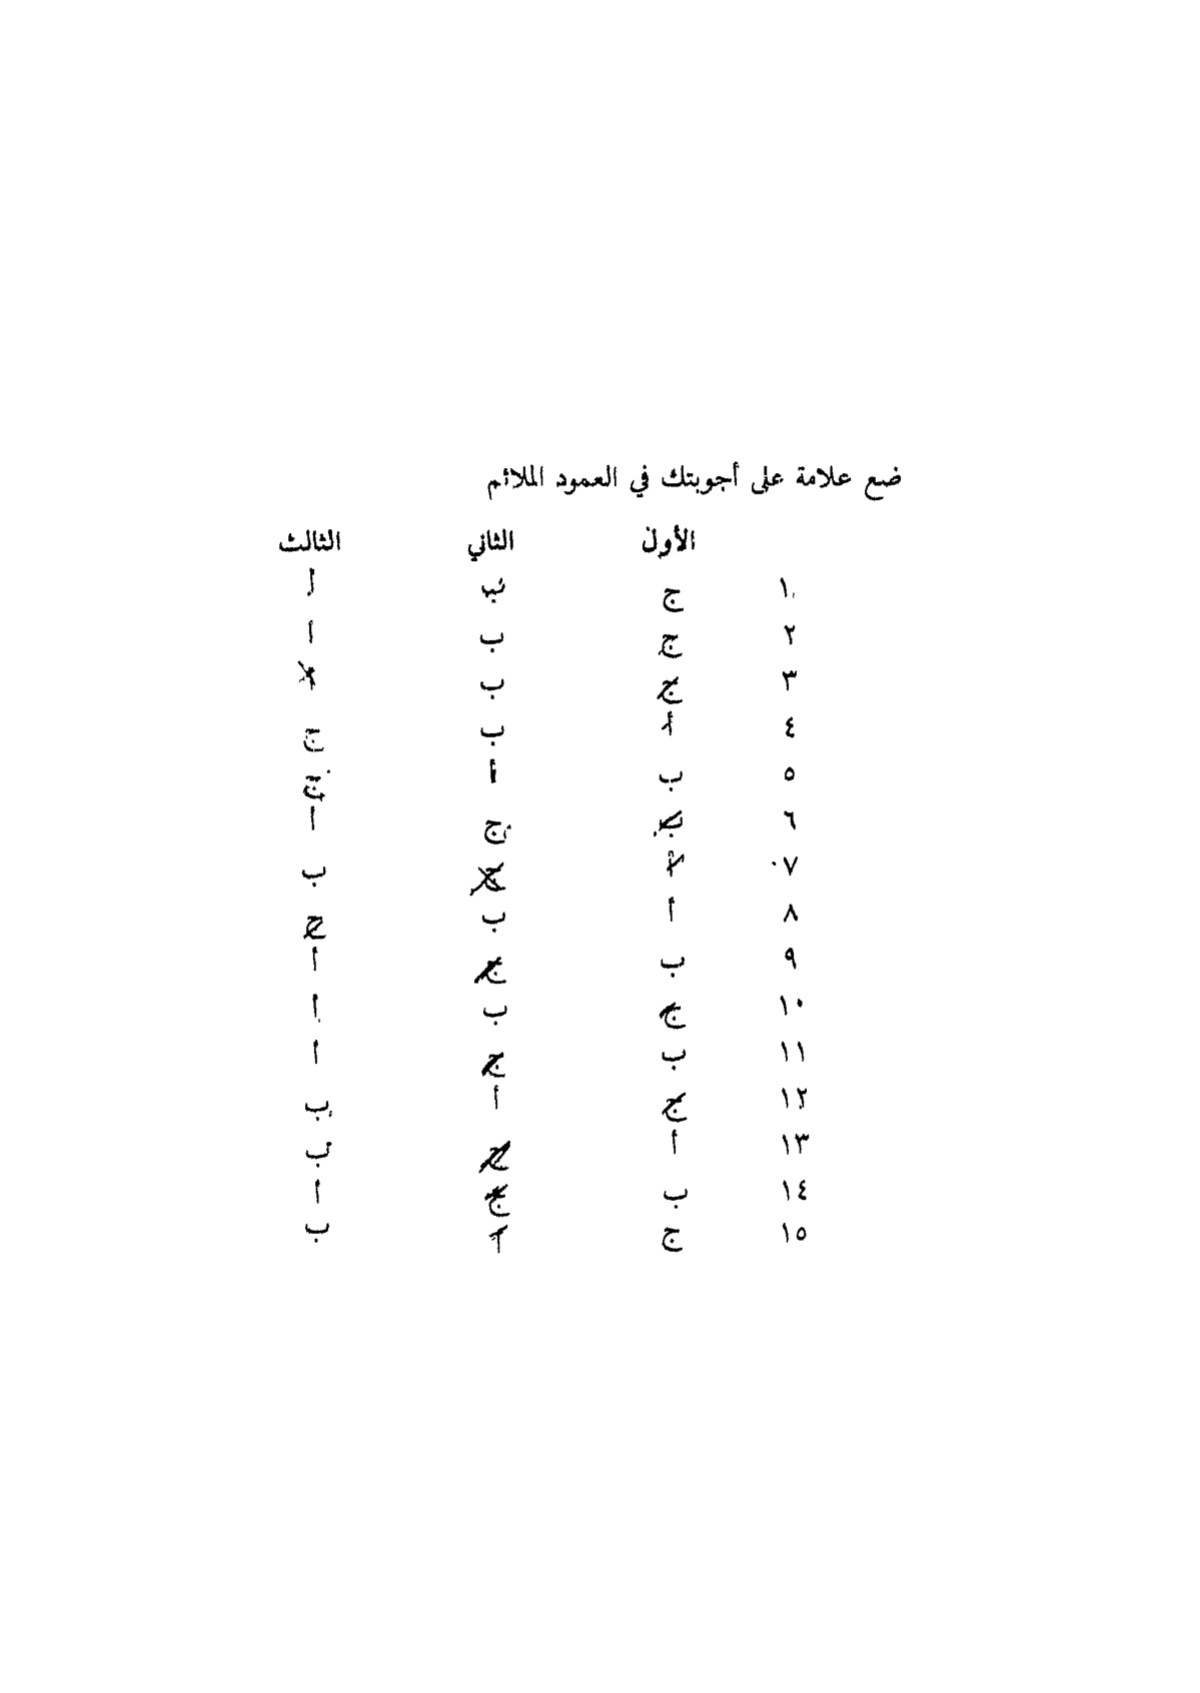 ضع علامة على أجوبتك في العمود الملائم
الأول الثاني الثالث
١ ج ب أ
٢ ج ب أ
٣ ج ب أ
٤ أ ب ج
٥ ب أ ج
٦ ب ج أ
٧ أ ج ب
٨ أ ب ج
٩ ب ج أ
١٠ ج ب أ
١١ ب ج أ
١٢ ج أ ب
١٣ أ ج ب
١٤ ب ج أ
١٥ ج أ ب